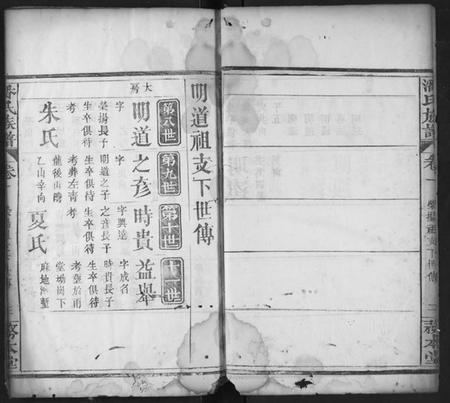 潘氏族譜
卷一
務本堂
明道祖支下世傳
第八世
第九世
第十世
十一世
大房
明道
字
榮揚長子
生卒俱待
考
朱氏
之彥
字
明道之子
生卒俱待
考葬左青
龍後山灣
乙山辛向
時貴
字興達
之彥長子
生卒俱待
考
夏氏
益舉
字成名
時貴長子
生卒俱待
考葬於雨
堂塆崗下
麻地
潘氏族譜
卷一
務本堂